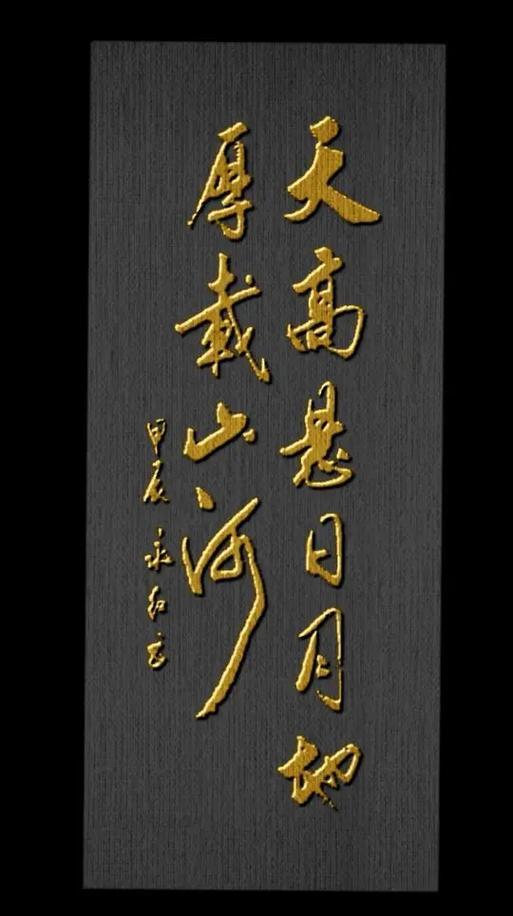 天高悬日月地
厚载山河
甲辰 永红书